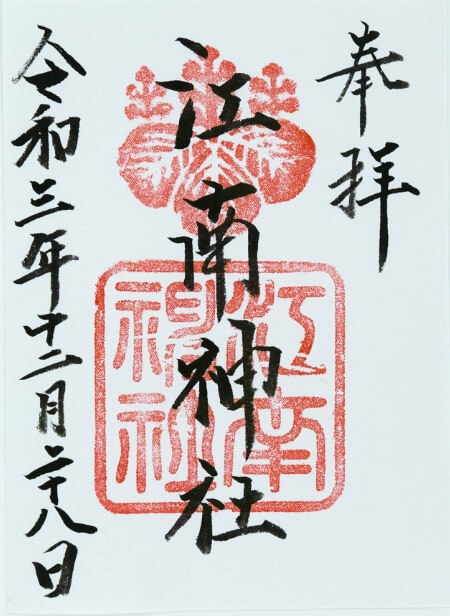 奉拝
江南神社
江南神社
令和三年十二月二十八日